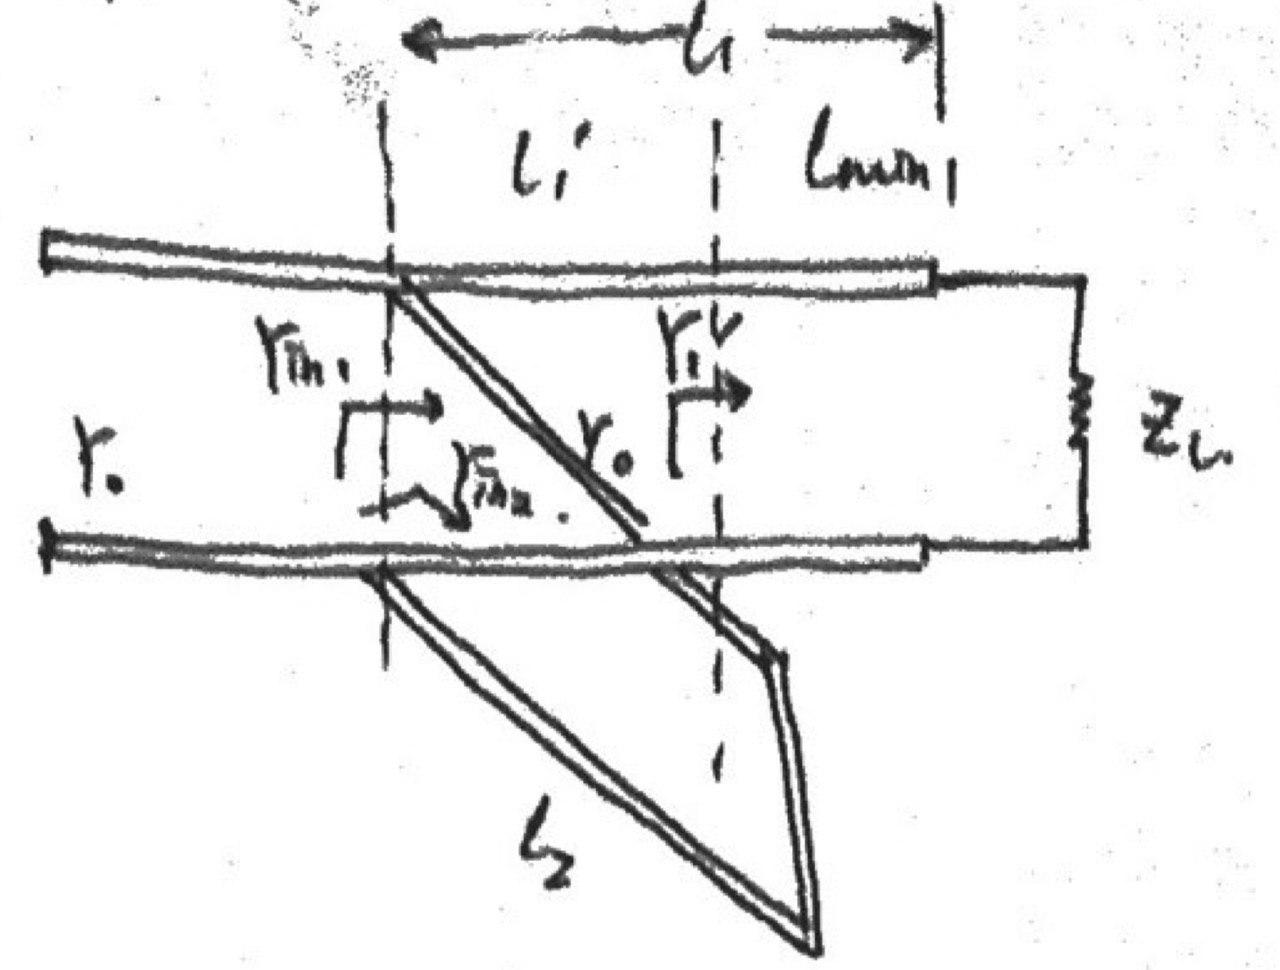 l₁
l₁′
lmin₁
Yin₁
Y₁
Y₀
Y₀
Yin₂
Z_L
l₂